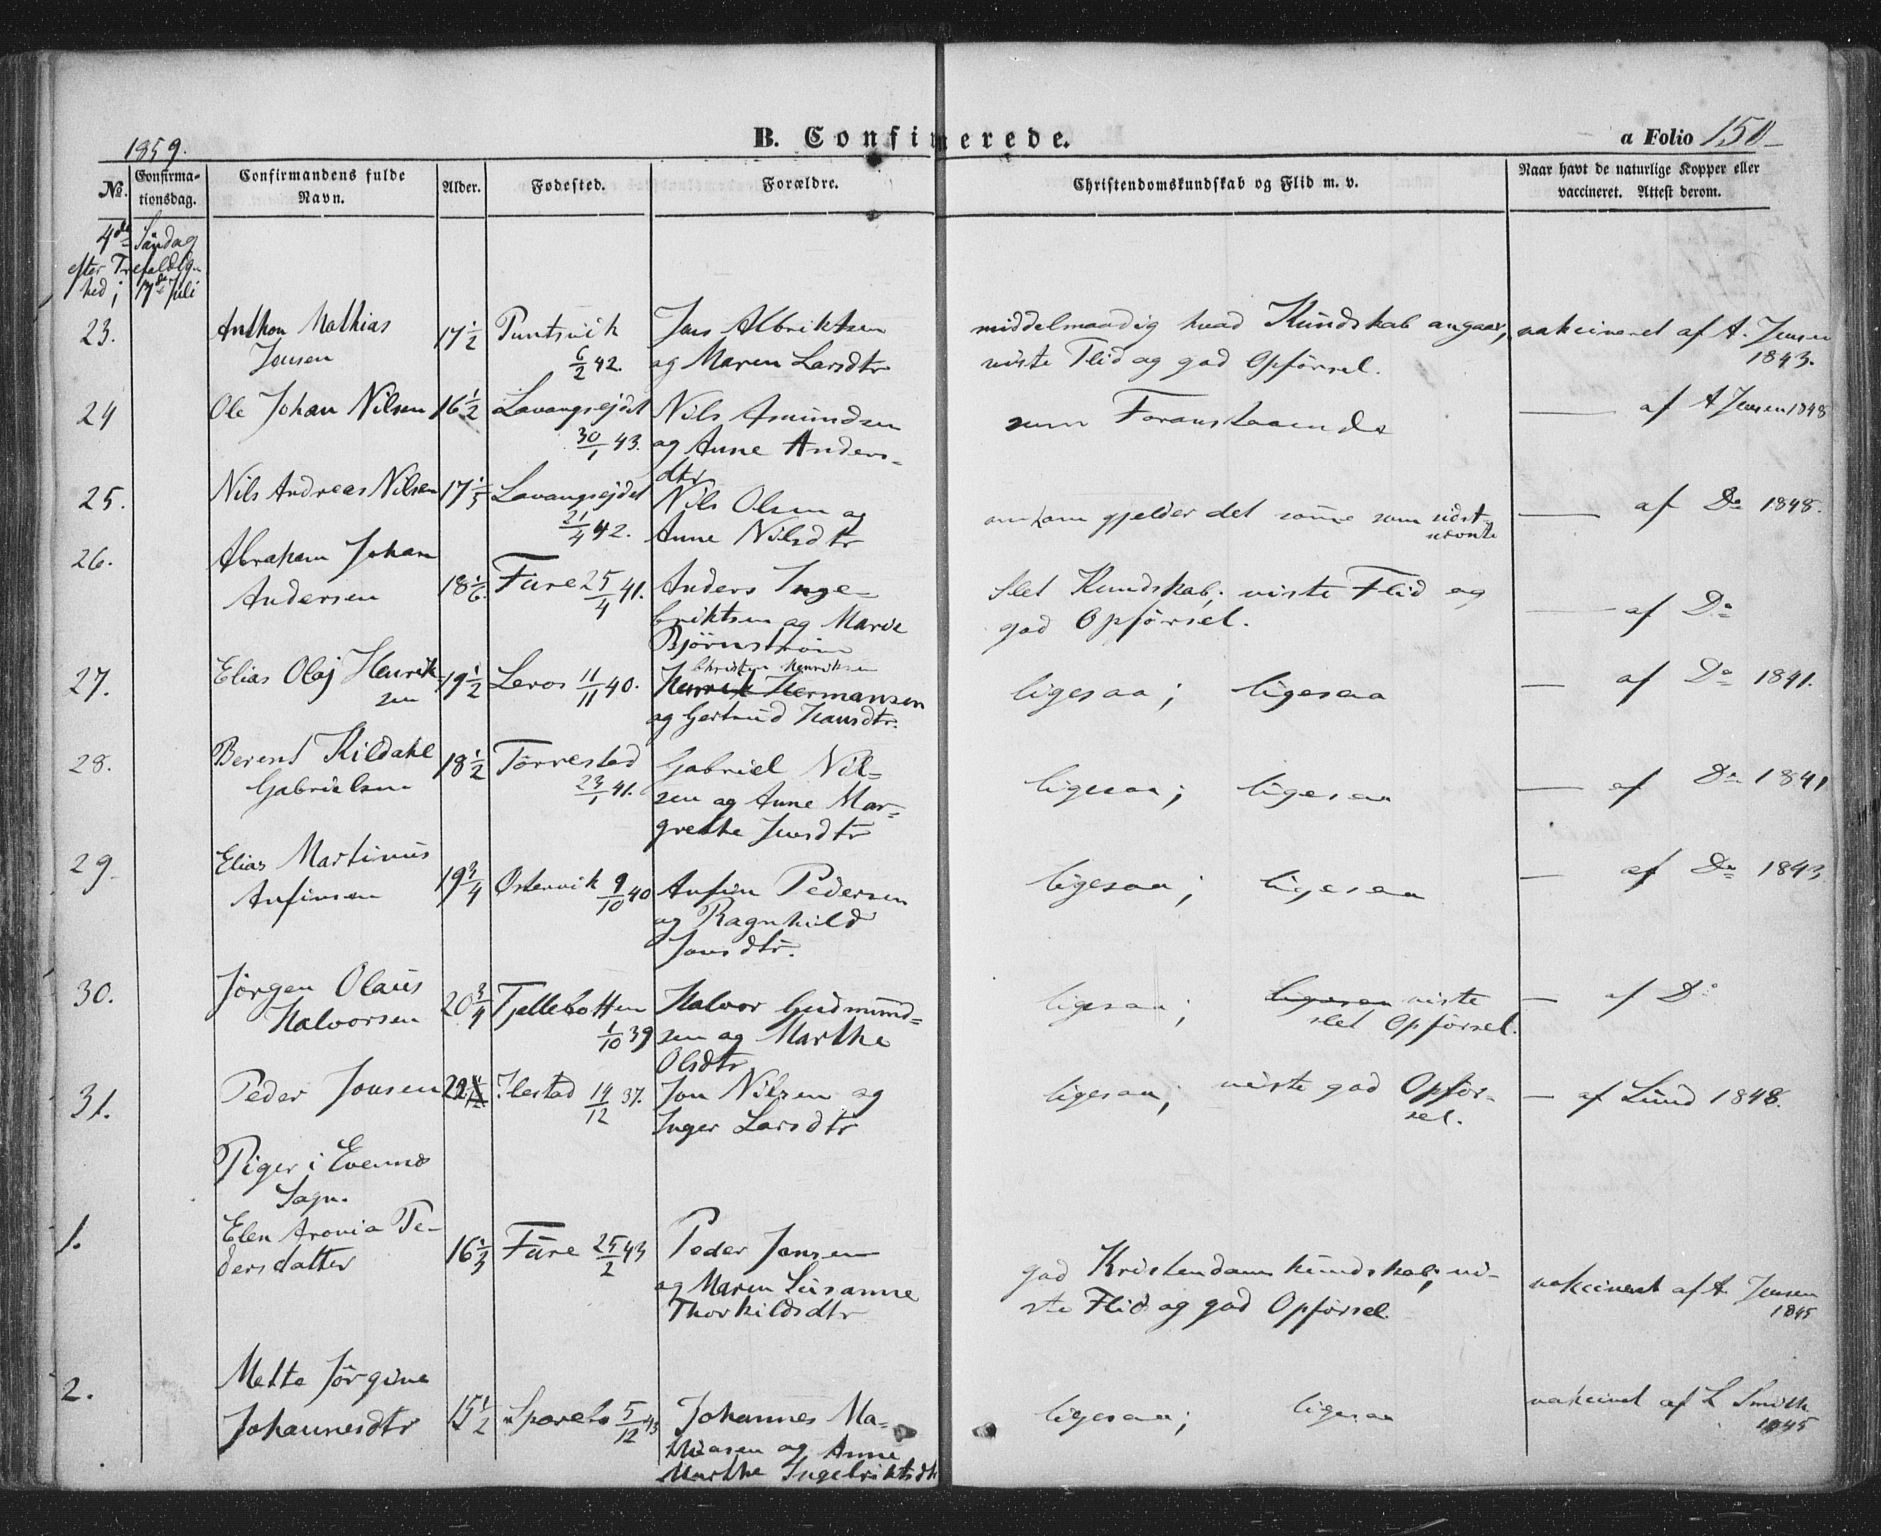 1859.
B. Confirmerede.
a Folio 150
No.
Confirmationsdag.
Confirmandens fulde Navn.
Alder.
Fødested.
Forældre.
Christendomskundskab og Flid m. v.
Naar havt de naturlige Kopper eller vaccineret. Attest derom.
4de Søndag
efter Trefoldig-
hed; 17de Juli
23. Anthon Mathias 17 1/2 Puntsvik Jens Albriktsen middelmaadig hvad Kundskab angaar, vakcineret af A. Jensen
Jensen 6/2 42. og Maren Larsdtr viste Flid og god Opførsel. 1843.
24 Ole Johan Nilsen 16 1/2 Lavangsejdet Nils Amundsen som Foranstaaende — af A Jensen 1848
30/1 43. og Anne Anders-
dtr
25. Nils Andreas Nilsen 17 1/3 Lavangsejdet Nils Olsen og om ham gjelder det samme som sidst- — af Do 1848.
21/4 42. Anne Nilsdtr nævnte
26. Abraham Johan 18 1/6 Fure 25/4 41. Anders Inge- slet Kundskab; viste Flid og — af Do
Andersen briktsen og Marie god Opførsel.
Bjørnstrøm
Christen Henriksen
27. Elias Olaj Henrik- 19 1/2 Leros 11/11 40. Henrik Hermansen ligesaa; ligesaa — af Do 1841.
sen og Gertrud Hansdtr.
28. Berent Kildahl 18 1/2 Tørrestad Gabriel Nil- ligesaa; ligesaa — af Do 1841
Gabrielsen 23/1 41. sen og Anne Mar-
grethe Jensdtr
29. Elias Martinus 19 3/4 Østervik 9/10 40 Anfin Pedersen ligesaa; ligesaa — af Do 1843
Anfinsen og Ragnhild
Jonsdtr.
30. Jørgen Olaus 20 3/4 Tjellebotten Halvor Gudmund- ligesaa; ligesaa viste — af Do
Halvorsen 1/10 39 sen og Marthe slet Opførsel.
Olsdtr
31. Peder Jonsen Ilestad 14/12 37. Jon Nilsen og ligesaa; viste god Opfør- — af Lund 1848.
Inger Larsdtr sel.
Piger i Evenнæs
Sogn.
1. Elen Aronia Pe- 16 1/3 Fure 25/2 43 Peder Jansen god Kristendomskundskab; vi- vakcineret af A Jensen
dersdatter og Maren Susanne ste Flid og god Opførsel 1845
Thorkildsdtr
2. Mette Jørgine 15 1/2 Spovebo 5/12 43 Johannes Ma- ligesaa; ligesaa vakcinet af L Smith
Johannesdtr thiasen og Anne 1845
Marthe Ingebriktsdtr